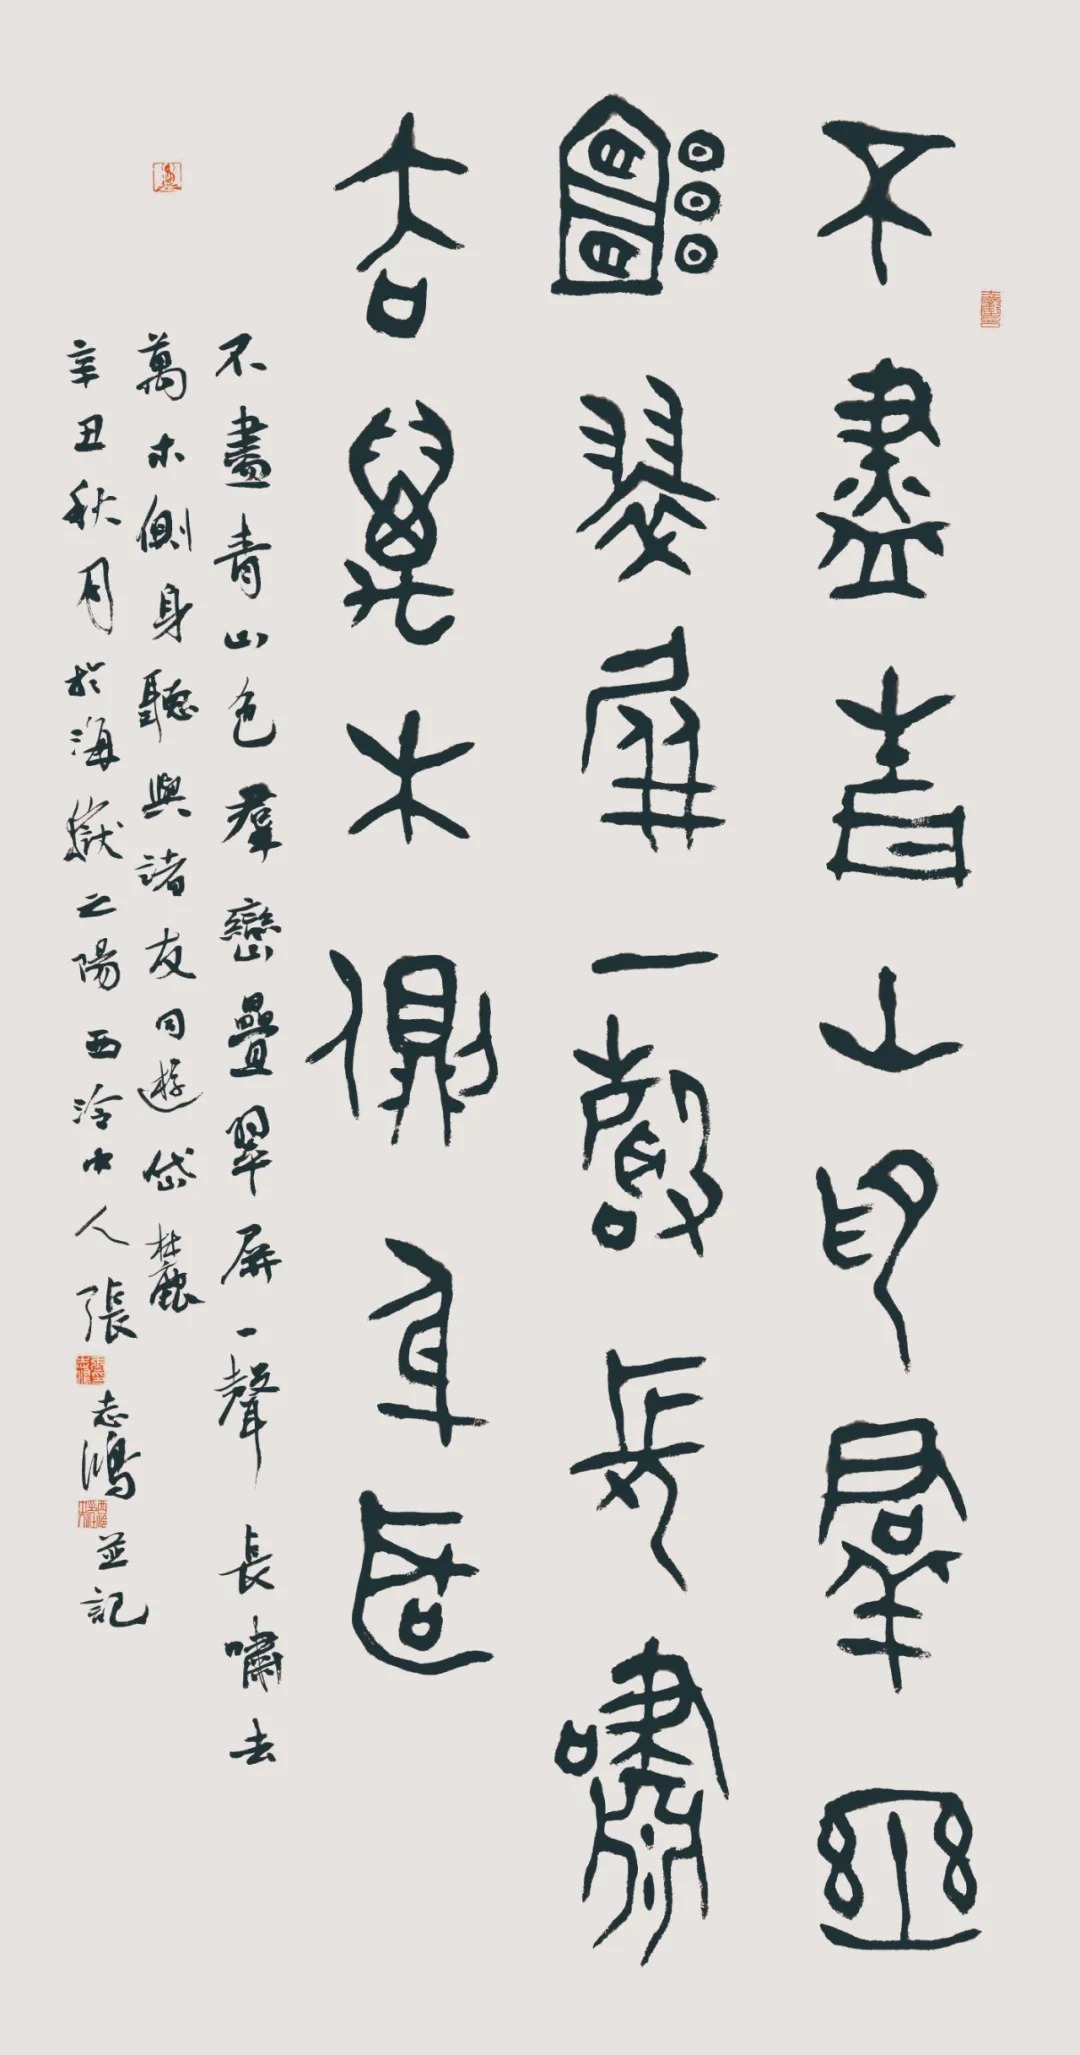 不盡青山色羣巒
疊翠屏一聲長嘯
去萬木側身聽
不盡青山色羣巒疊翠屏一聲長嘯去
萬木側身聽與諸友同遊岱麓
辛丑秋月於海嶽之陽西泠中人張志鴻並記